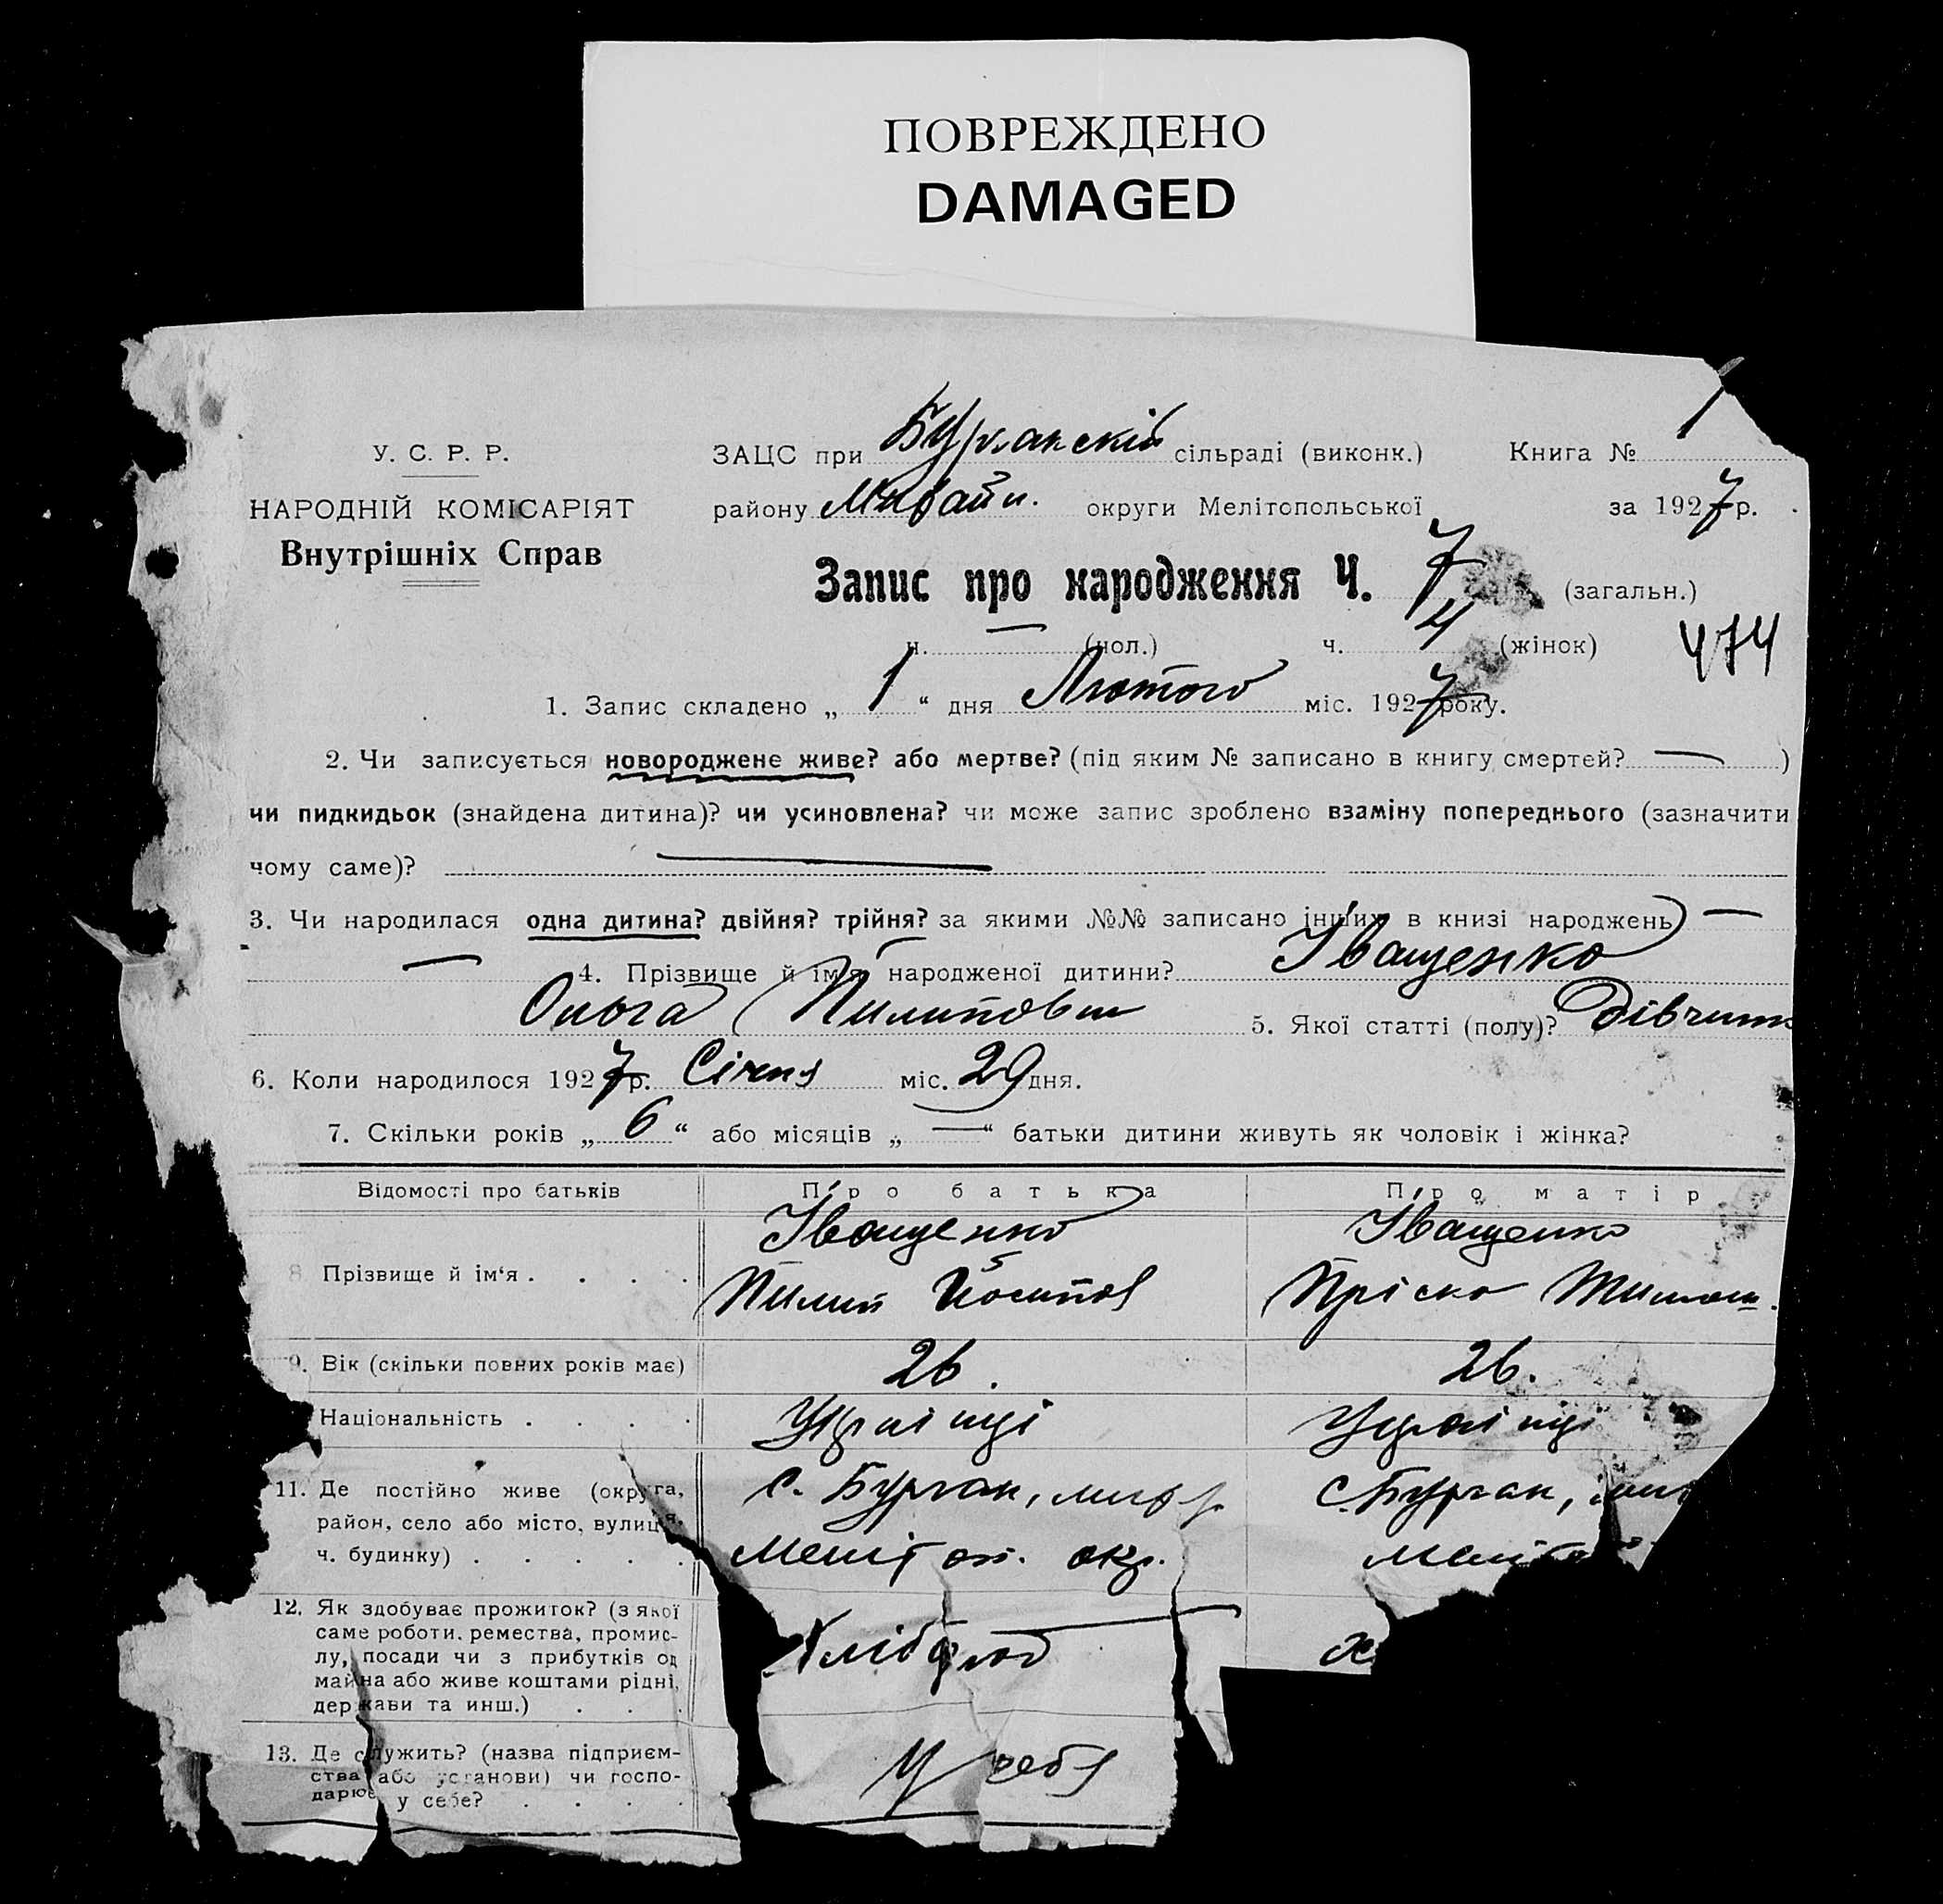 ПОВРЕЖДЕНО
DAMAGED
У. С. Р. Р.
НАРОДНІЙ КОМІСАРІЯТ
Внутрішніх Справ
ЗАЦС при Бурганскій сільраді (виконк.) Книга № 1
району округи Мелітопольської за 1927 р.
Запис про народження Ч. 7 (загальн.)
ч. — (чол.) ч. 4 (жінок) 474
1. Запис складено „ 1 “ дня Лютого міс. 1927 року.
2. Чи записується новороджене живе? або мертве? (під яким № записано в книгу смертей? — )
чи пидкидьок (знайдена дитина)? чи усиновлена? чи може запис зроблено взаміну попереднього (зазначити
чому саме)? —
3. Чи народилася одна дитина? двійня? трійня? за якими №№ записано інших в книзі народжень) —
— 4. Прізвище й ім'я народженої дитини? Іващенко
Ольга Пилиповн 5. Якої статті (полу)? Дівчинк
6. Коли народилося 1927 р. Січня міс. 29 дня.
7. Скільки років „ 6 “ або місяців „ — “ батьки дитини живуть як чоловік і жінка?
Відомості про батьків Про батька Про матір
8. Прізвище й ім‘я . . . . Іващенко Іващенко
Пилип Йосипов Пріска Тимош.
9. Вік (скільки повних років має) 26. 26.
Національність . . . . Українці Українці
11. Де постійно живе (округа, район, село або місто, вулиця, ч. будинку) . . . . . с. Бурган, с. Бурган,
Меліт оп. окр. меліт
12. Як здобуває прожиток? (з якої саме роботи, ремества, промислу, посади чи з прибутків од майна або живе коштами рідні, держави та инш.) . . . Хлібороб х
13. Де служить? (назва підприємства або установи) чи господарює у себе? . . . . У себя